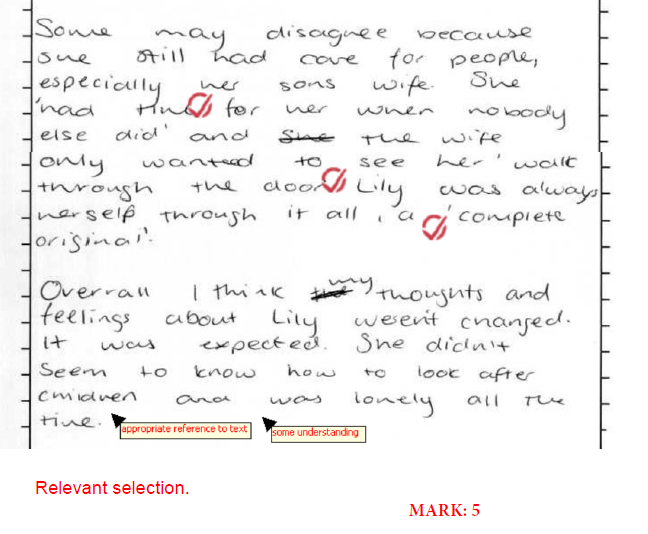 Some may disagree because
she still had care for people,
especially her sons wife. She
'had time for her when nobody
else did' and She the wife
only wanted to see her 'walk
through the door' Lily was always
herself through it all, a 'complete
original'.
Overrall I think the my thoughts and
feelings about Lily wesen't changed.
It was expected. She didn't
seem to know how to look after
children and was lonely all the
time.
appropriate reference to text
some understanding
Relevant selection.
MARK: 5